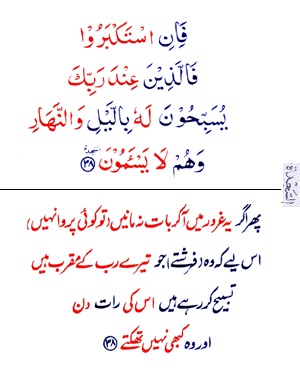 فَاِنِ اسْتَكْبَرُوْا
فَالَّذِيْنَ عِنْدَ رَبِّكَ
يُسَبِّحُوْنَ لَهٗ بِالَّيْلِ وَالنَّهَارِ
وَهُمْ لَا يَسْـَٔمُوْنَ ۩ ﴿۳۸﴾
السجدة
پھر اگر یہ غرور میں آکر بات نہ مانیں (تو کوئی پروا نہیں)
اس لیے کہ وہ (فرشتے) جو تیرے رب کے مقرب ہیں
تسبیح کر رہے ہیں اس کی رات دن
اور وہ کبھی نہیں تھکتے ﴿۳۸﴾